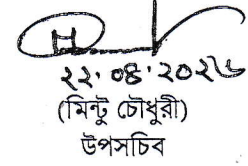 ২২.০৪.২০২৬
(মিন্টু চৌধুরী)
উপসচিব